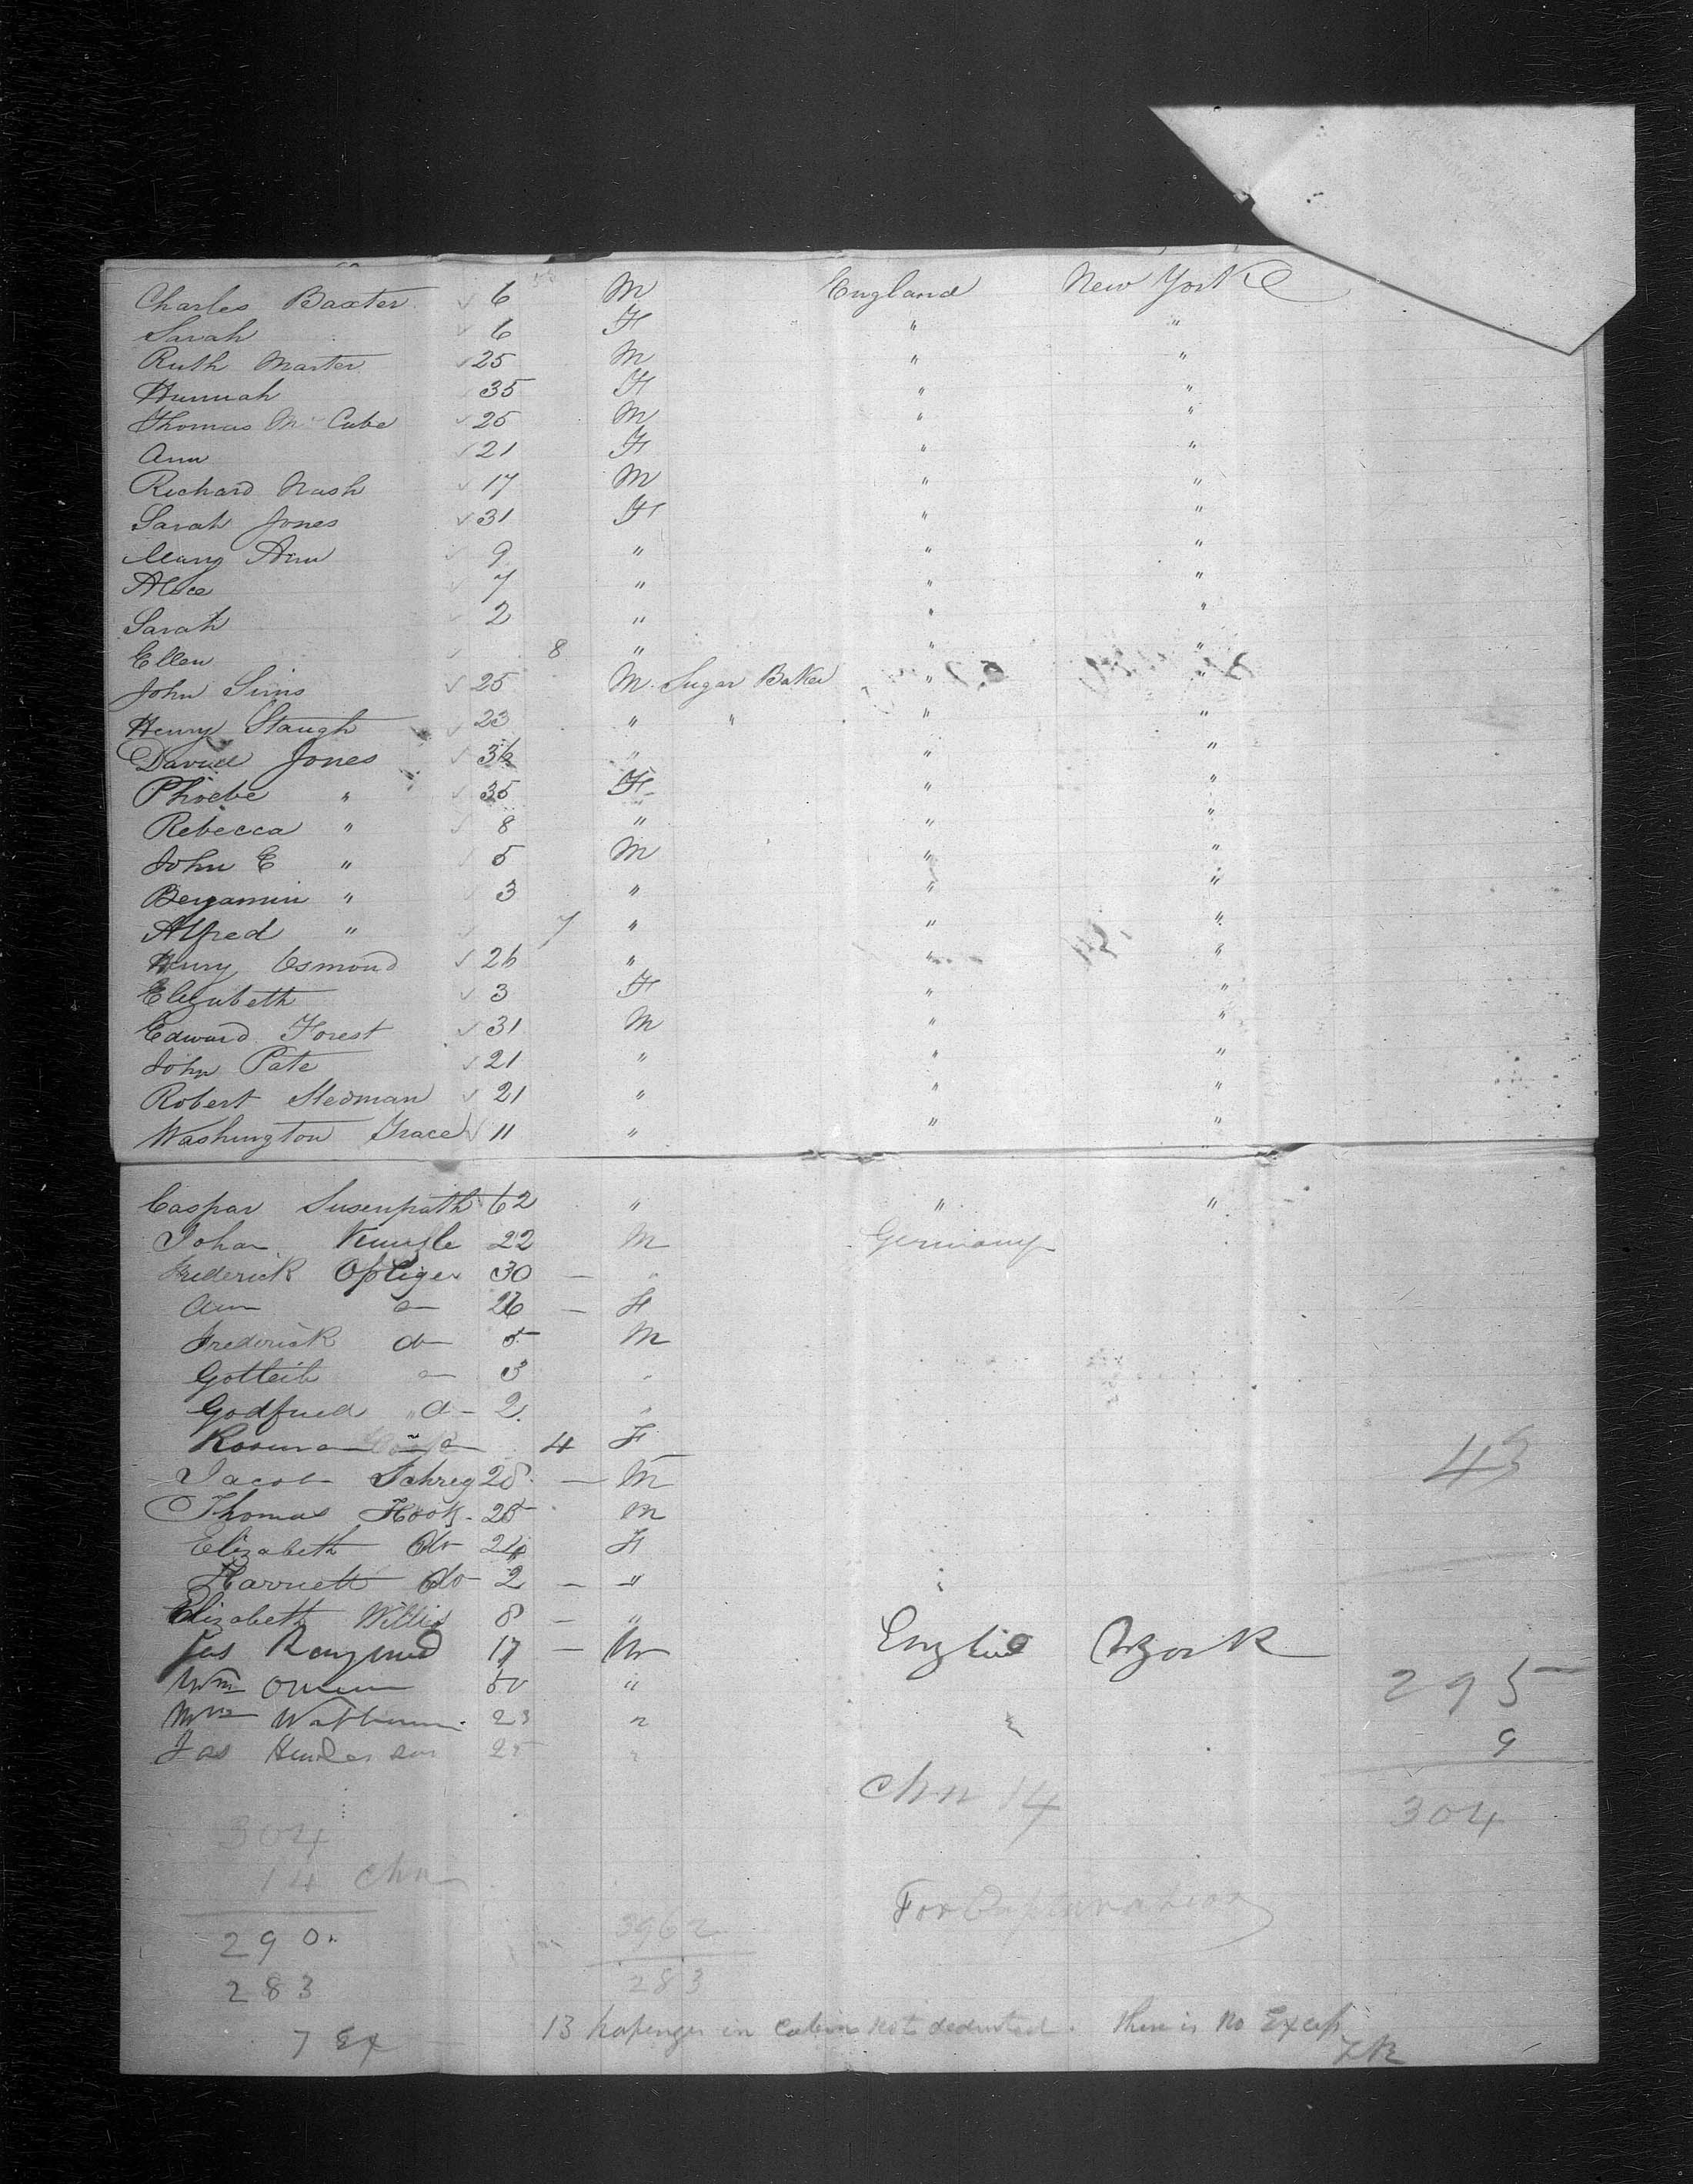 Charles Baxter ✓ 6 M England New York
Sarah ✓ 6 F " "
Ruth Marter ✓ 25 M " "
Hannah ✓ 35 F " "
Thomas Mc Cabe ✓ 25 M " "
Ann ✓ 21 F " "
Richard Nash ✓ 17 M " "
Sarah Jones ✓ 31 F " "
Mary Ann ✓ 9 " " "
Alice ✓ 7 " " "
Sarah ✓ 2 " " "
Ellen ✓ 8 " " "
John Sims ✓ 25 M Sugar Baker " "
Henry Staugh ✓ 23 " " " "
David Jones ✓ 36 " " "
Phoebe " ✓ 35 F " "
Rebecca " ✓ 8 " " "
John E " ✓ 5 M " "
Benjamin " ✓ 3 " " "
Alfred " ✓ 7 " " "
Henry Osmond ✓ 26 " " "
Elizabeth ✓ 3 F " "
Edward Forest ✓ 31 M " "
John Pate ✓ 21 " " "
Robert Stedman ✓ 21 " " "
Washington Grace ✓ 11 " " "
Caspar Susenpath 62 " " "
Johan 22 M Germany
Frederick Opliger 30 — "
Ann 26 — F
Frederick do 5 M
Gotleib 3 "
Godfried do 2 "
4 F
Jacob 28 — M
43
Thomas Hook 25 M
Elizabeth do 24 F
Harriett do 2 — "
Elizabeth Willis 8 — "
Jas 17 — M
Wm "
295
23 "
9
Jas Henderson 25 "
chn 14
304
304
14 chn
For Explanation
290
3962
283
283
7 Ex
13 passenger in Cabin not deducted. There is No Excess